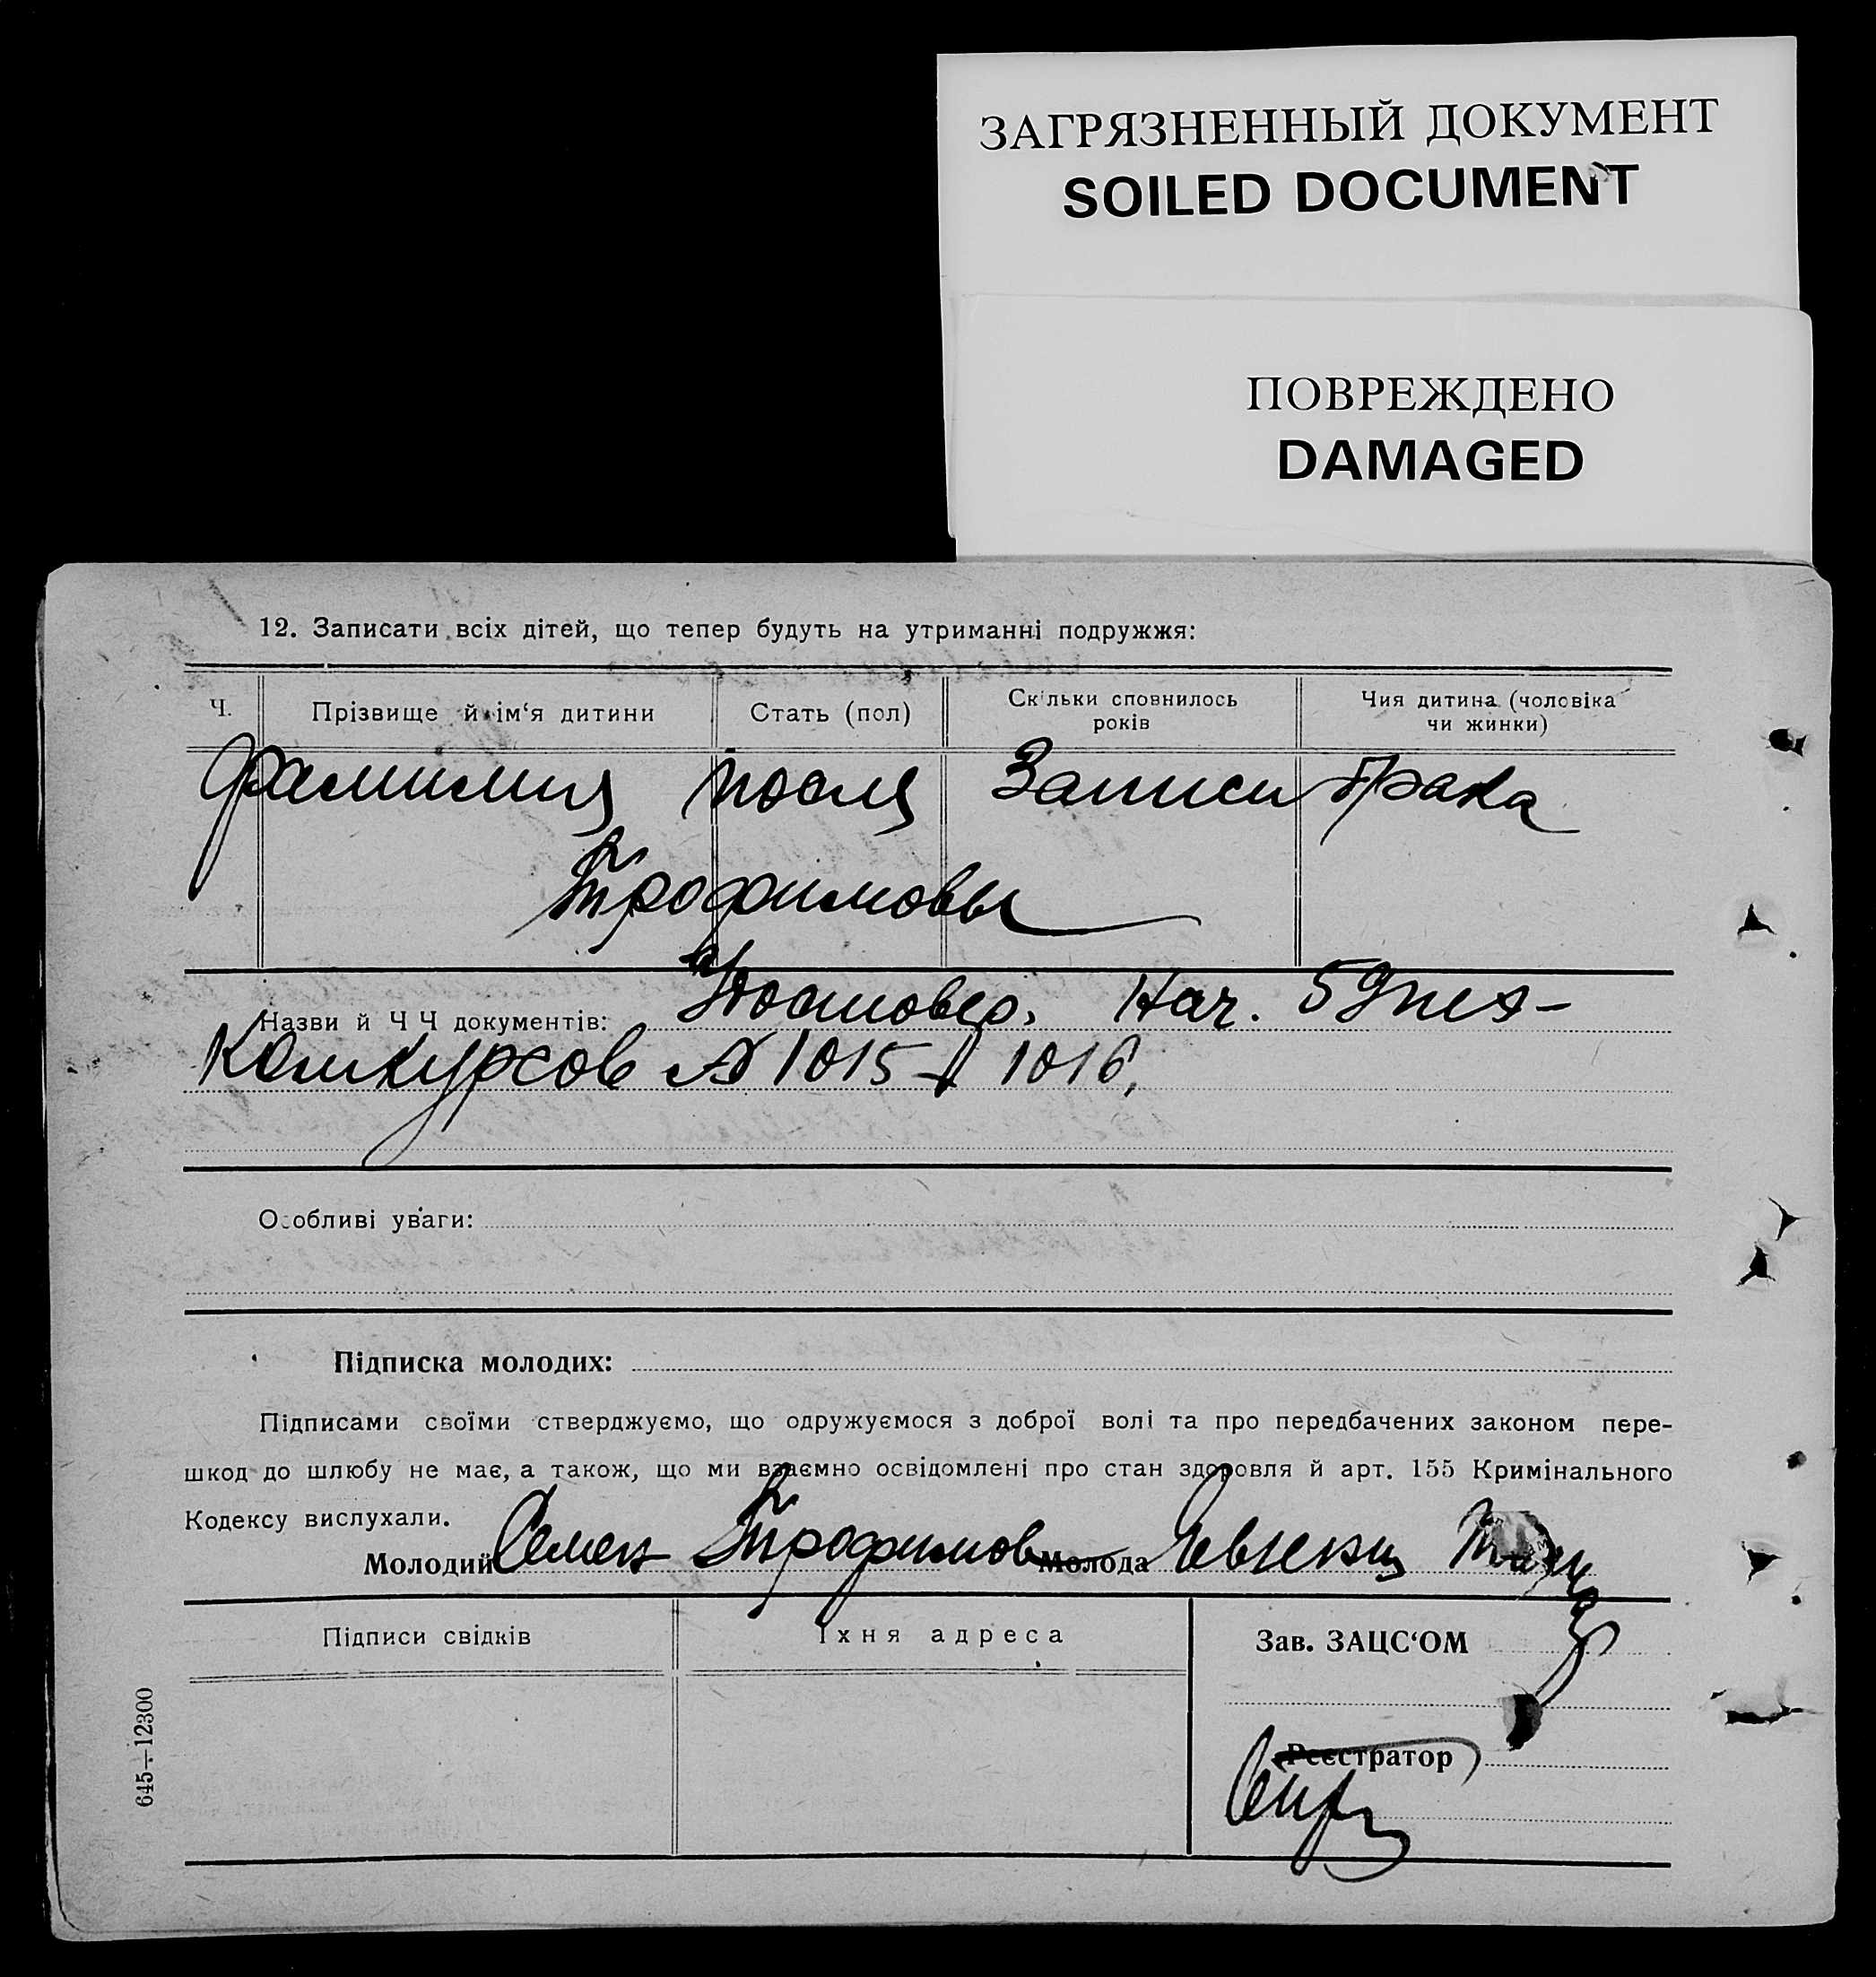 ЗАГРЯЗНЕННЫЙ ДОКУМЕНТ
SOILED DOCUMENT
ПОВРЕЖДЕНО
DAMAGED
12. Записати всіх дітей, що тепер будуть на утриманні подружжя:
Ч. Прізвище й ім‘я дитини Стать (пол) Скільки сповнилось років Чия дитина (чоловіка чи жинки)
Фамилия после Записи брака
Трофимовы
Назви й Ч Ч документів: Удостовер. Нач. 5
Комкурсов № 1015 1016,
Особливі уваги:
Підписка молодих:
Підписами своїми стверджуємо, що одружуємося з доброї волі та про передбачених законом пере-
шкод до шлюбу не має, а також, що ми взаємно освідомлені про стан здоровля й арт. 155 Кримінального
Кодексу вислухали.
Молодий Семен Трофимов Молода
Підписи свідків Їхня адреса Зав. ЗАЦС‘ОМ
Реєстратор
645—12300